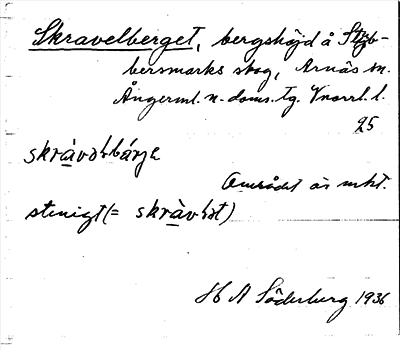 Skravelberget, bergshöjd å Stub-
bersmarks skog, Arnäs sn.
Ångerml. n. doms. tg. Vnorrl. l.
25
skràvəɫbárjə
Området är mkt.
stenigt (= skràvɫət)
H A Söderburg 1936